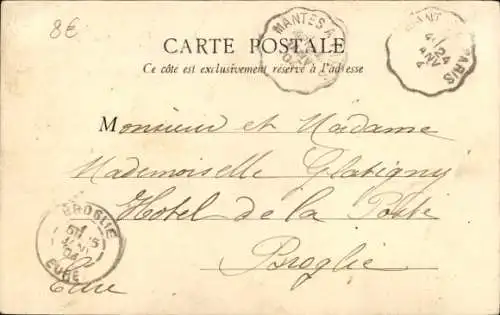 8€
MANTES A
CARTE POSTALE
Ce côté est exclusivement réservé à l'adresse
24
JANV
PARIS
Monsieur et Madame
Mademoiselle Glatigny
Hotel de la Poste
Broglie
Eure
BROGLIE
JANV
04
EURE